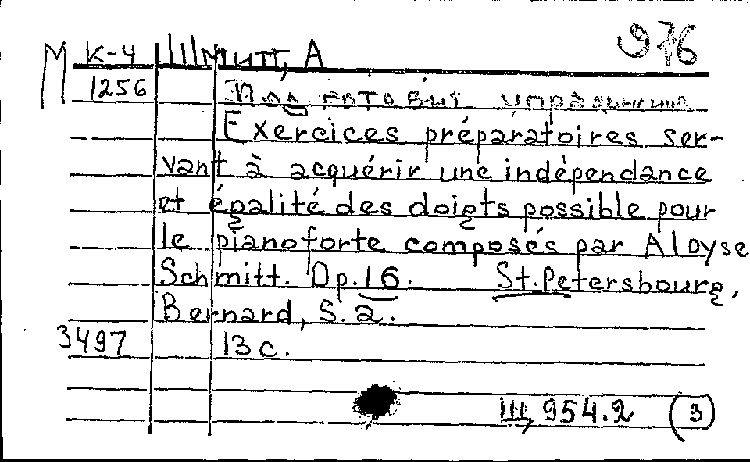 976
М К-4 Шмитт, А
1256 Подготовит. упражнения
Exercices préparatoires ser-
vant à acquérir une indépendance
et égalité des doigts possible pour
le pianoforte composés par Aloyse
Schmitt. Op. 16. St. Petersbourg,
Bernard, S. a.
3497 13 с.
Ш 954.2 (3)